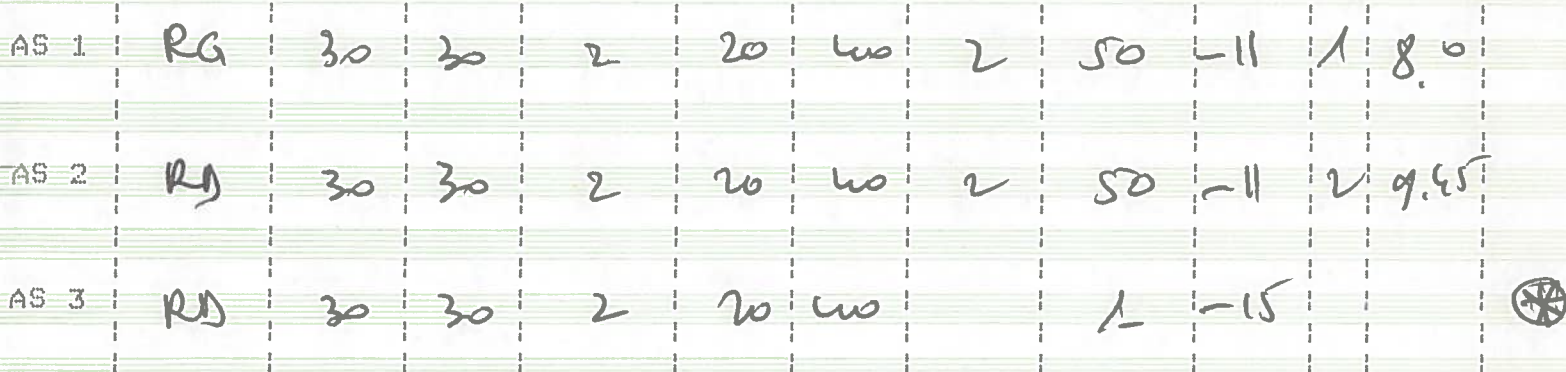 AS 1 RG 30 30 2 20 40 2 50 -11 1 8.0
AS 2 RD 30 30 2 20 40 2 50 -11 2 9.45
AS 3 RD 30 30 2 20 40 1 -15